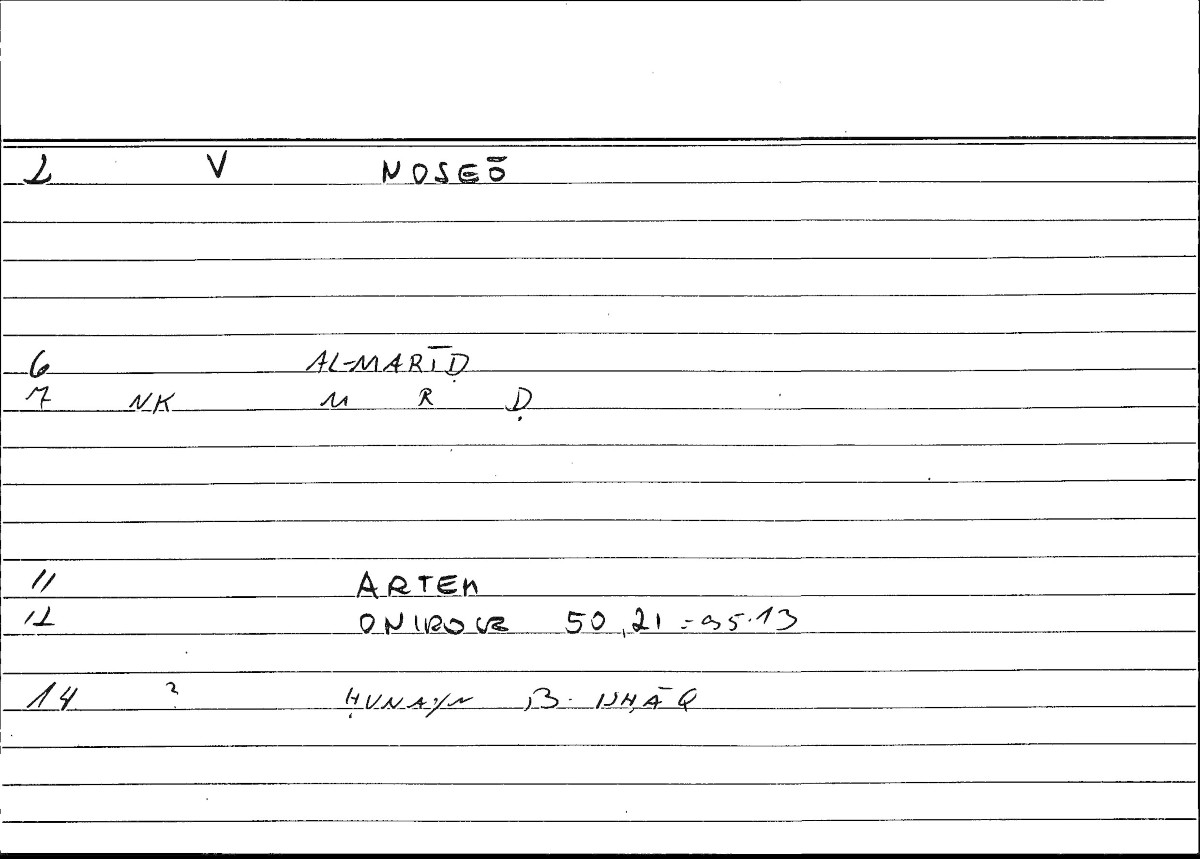 2 V NOSEŌ
6 AL-MARĪḌ
7 NK M R Ḍ
11 ARTEM
12 ONIROCR 50,21 = 95.13
14 ? ḤUNAYN B. ISḤĀQ